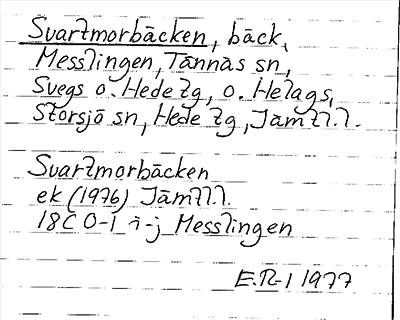 Svartmorbäcken, bäck,
Messlingen, Tännäs sn,
Svegs o. Hede tg, o. Helags,
Storsjö sn, Hede tg, Jämtl.l.
Svartmorbäcken
ek (1976) Jämtl.l.
18C 0-1 i-j Messlingen
E.R-l 1977